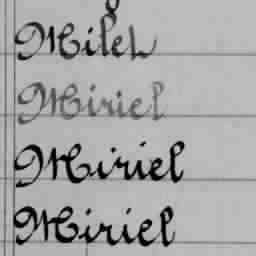 Milch
Miriel
Miriel
Miriel